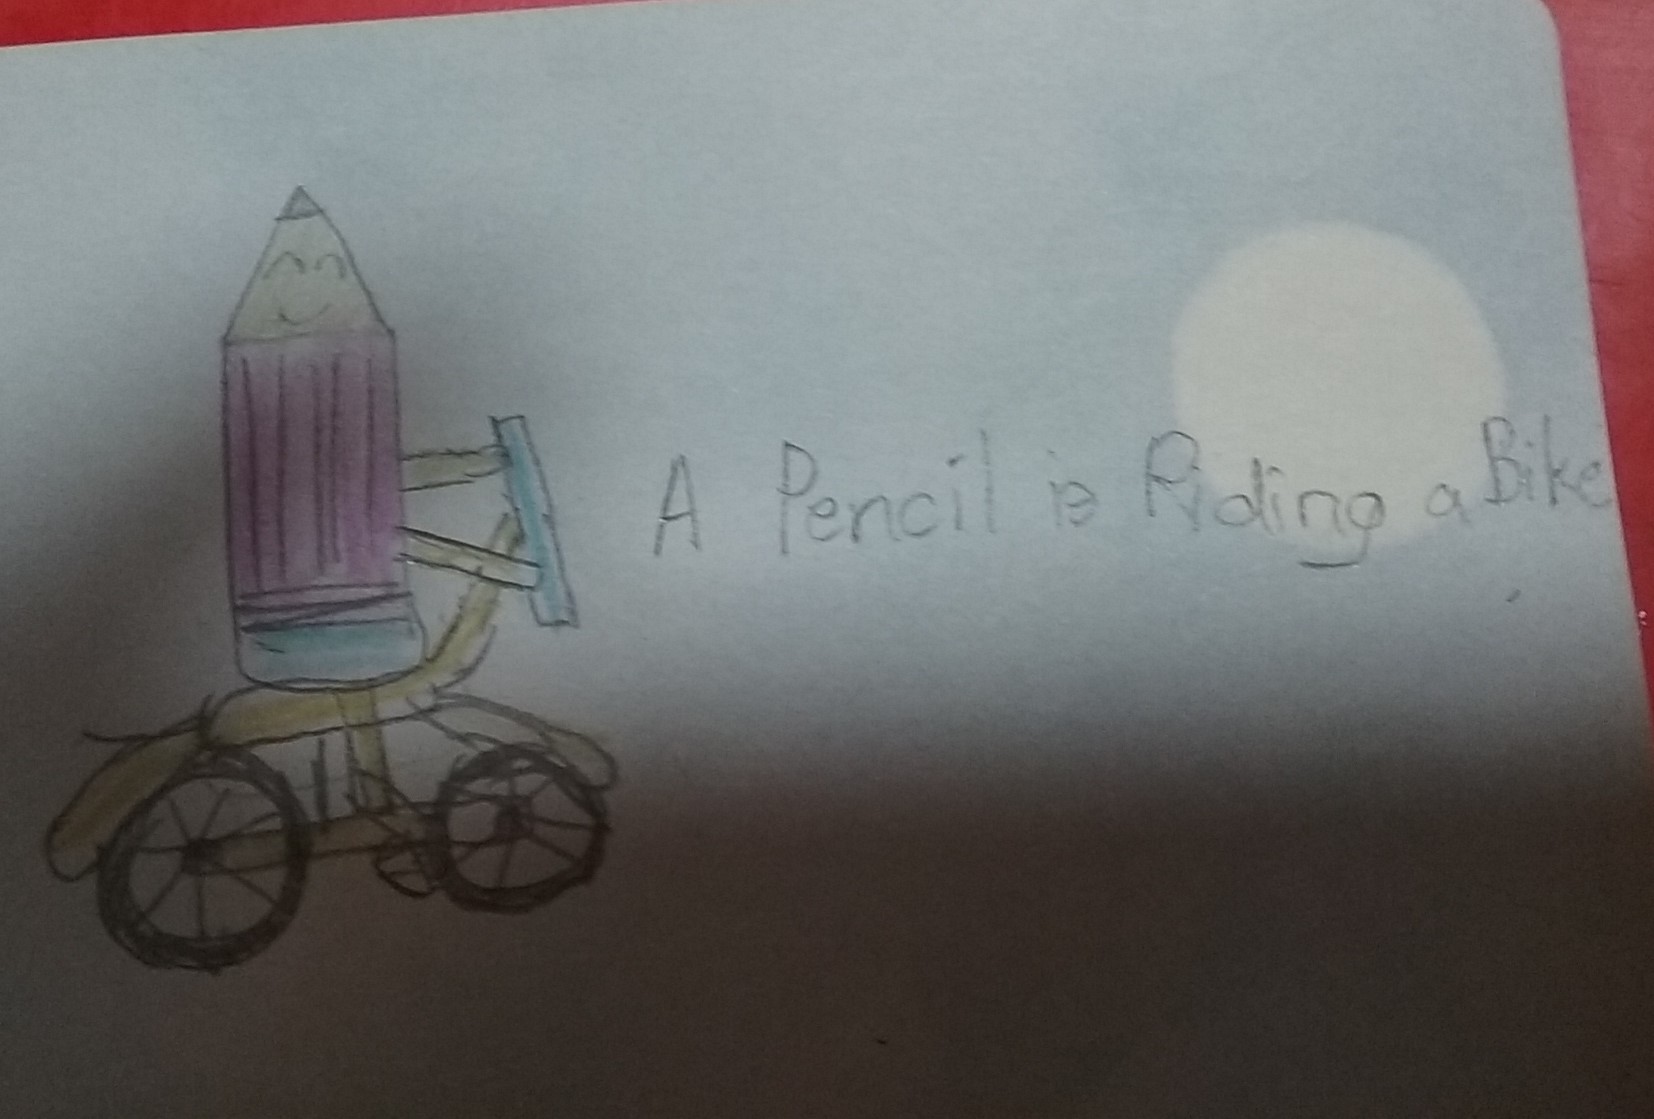 A Pencil is Riding a Bike